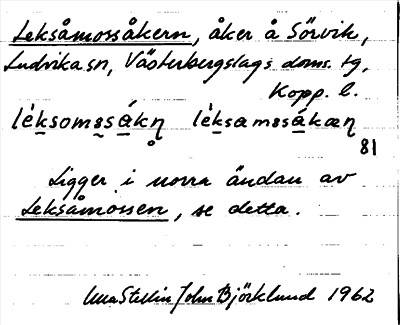 Leksåmossåkern, åker å Sörvik,
Ludvika sn, Västerbergslags doms. tg,
Kopp. l.
léksomssákṇ léksamssákæṇ
81
Ligger i norra ändan av
Leksåmossen, se detta.
John Björklund 1962